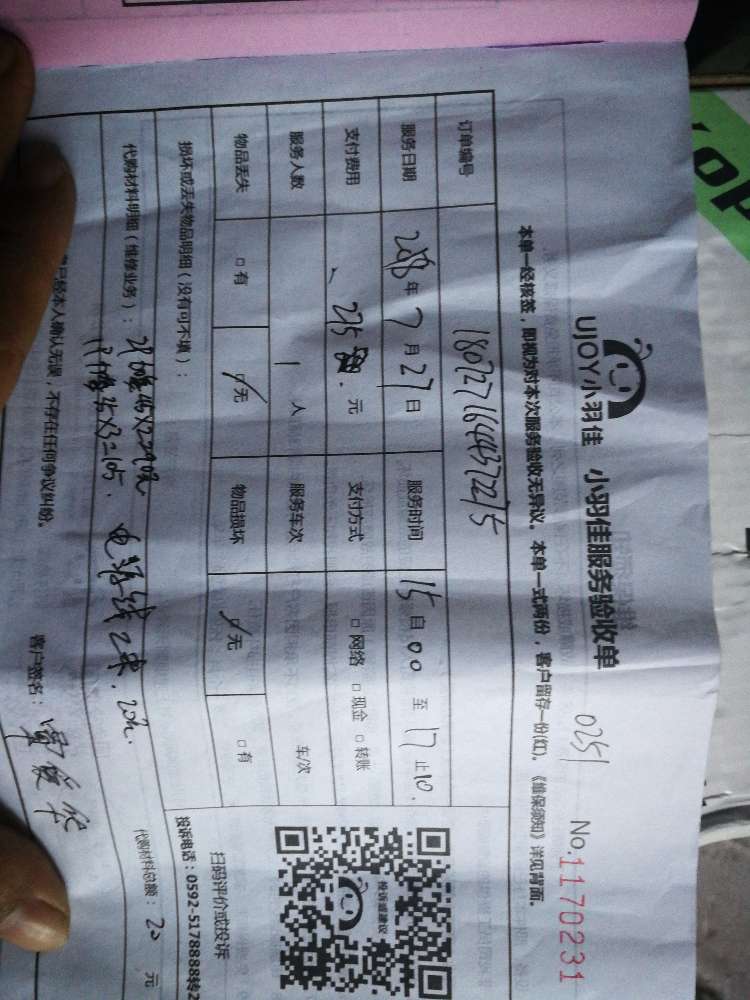 UJOY小羽佳 小羽佳服务验收单 0251 No.1170231
本单一经核签，即视为对本次服务验收无异议。本单一式两份，客户留存一份(红)。《维保须知》详见背面。
订单编号 180727164437275
服务日期 2018年7月27日 服务时间 15自00至17止10.
支付费用 275元 支付方式 □网络 □现金 □转账
服务人数 1人 服务车次 车/次
物品丢失 □有 □无 物品损坏 □无 □有
损坏或丢失物品明细（没有可不填）：
代购材料明细（维修业务）： 电源线2米，20元.
35X3=105.
代购材料总额：20元
已经本人确认无误，不存在任何争议纠纷。
客户签名：
投诉或建议
扫码评价或投诉
投诉电话：0592-5178888转2